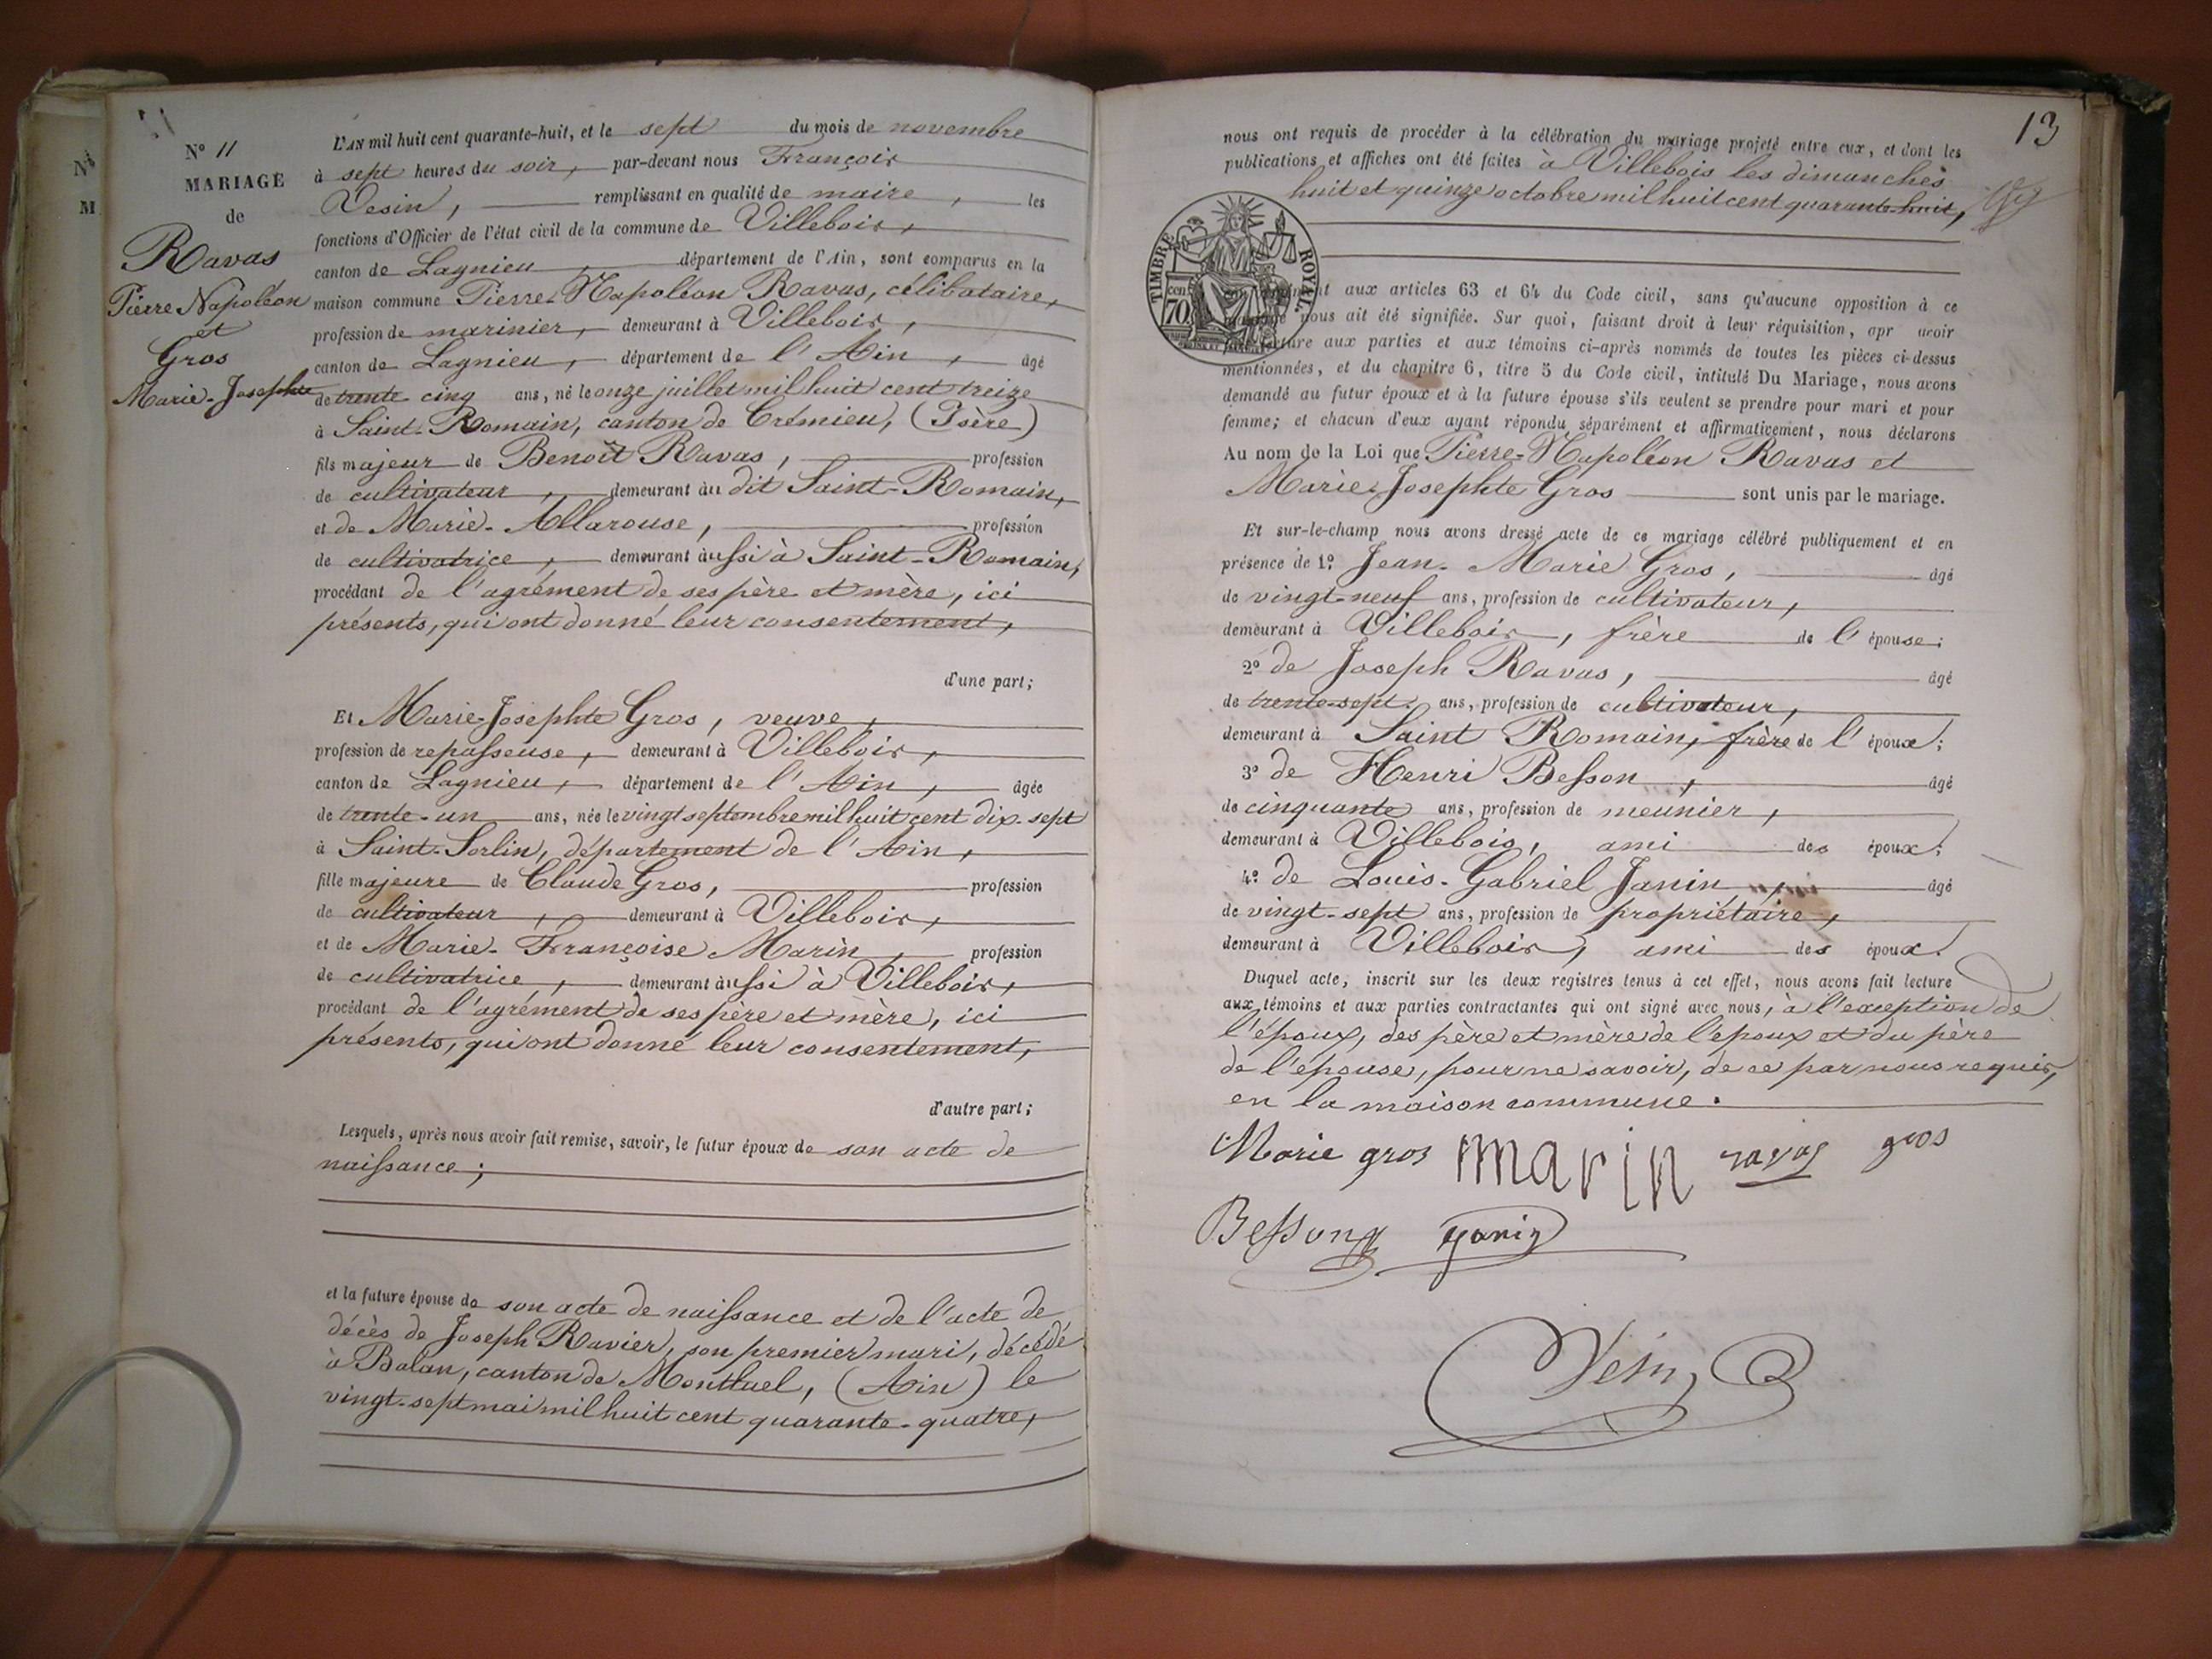 Nº 11
MARIAGE
de
Ravas
Pierre Napoléon
et
Gros
Marie-Josephte
L'AN mil huit cent quarante-huit, et le sept du mois de novembre
à sept heures du soir, par-devant nous François
Vesin, remplissant en qualité de maire, les
fonctions d'Officier de l'état civil de la commune de Villebois,
canton de Lagnieu, département de l'Ain, sont comparus en la
maison commune Pierre-Napoléon Ravas, célibataire,
profession de marinier, demeurant à Villebois,
canton de Lagnieu, département de l'Ain, âgé
de trente cinq ans, né le onze juillet mil huit cent treize
à Saint-Romain, canton de Crémieu, (Isère)
fils majeur de Benoît Ravas, profession
de cultivateur, demeurant au dit Saint-Romain,
et de Marie-Allarouse, profession
de cultivatrice, demeurant aussi à Saint-Romain,
procédant de l'agrément de ses père et mère, ici
présents, qui ont donné leur consentement,
d'une part;
Et Marie-Josephte Gros, veuve,
profession de repasseuse, demeurant à Villebois,
canton de Lagnieu, département de l'Ain, âgée
de trente-un ans, née le vingt septembre mil huit cent dix-sept
à Saint-Sorlin, département de l'Ain,
fille majeure de Claude Gros, profession
de cultivateur, demeurant à Villebois,
et de Marie-Françoise Marin, profession
de cultivatrice, demeurant aussi à Villebois,
procédant de l'agrément de ses père et mère, ici
présents, qui ont donné leur consentement,
d'autre part;
Lesquels, après nous avoir fait remise, savoir, le futur époux de son acte de
naissance;
et la future épouse de son acte de naissance et de l'acte de
décès de Joseph Ravier, son premier mari, décédé
à Balan, canton de Montluel, (Ain) le
vingt-sept mai mil huit cent quarante-quatre,
13
nous ont requis de procéder à la célébration du mariage projeté entre eux, et dont les
publications et affiches ont été faites à Villebois les dimanches
huit et quinze octobre mil huit cent quarante-huit,
TIMBRE ROYAL
70 cent
aux articles 63 et 64 du Code civil, sans qu'aucune opposition à ce
nous ait été signifiée. Sur quoi, faisant droit à leur réquisition, apr avoir
lecture aux parties et aux témoins ci-après nommés de toutes les pièces ci-dessus
mentionnées, et du chapitre 6, titre 5 du Code civil, intitulé Du Mariage, nous avons
demandé au futur époux et à la future épouse s'ils veulent se prendre pour mari et pour
femme; et chacun d'eux ayant répondu séparément et affirmativement, nous déclarons
Au nom de la Loi que Pierre-Napoléon Ravas et
Marie-Josephte Gros sont unis par le mariage.
Et sur-le-champ nous avons dressé acte de ce mariage célébré publiquement et en
présence de 1º Jean-Marie Gros, âgé
de vingt-neuf ans, profession de cultivateur,
demeurant à Villebois, frère de l'épouse;
2º de Joseph Ravas, âgé
de trente-sept ans, profession de cultivateur,
demeurant à Saint Romain, frère de l'époux;
3º de Henri Besson, âgé
de cinquante ans, profession de meunier,
demeurant à Villebois, ami des époux;
4º de Louis-Gabriel Janin, âgé
de vingt-sept ans, profession de propriétaire,
demeurant à Villebois, ami des époux.
Duquel acte, inscrit sur les deux registres tenus à cet effet, nous avons fait lecture
aux témoins et aux parties contractantes qui ont signé avec nous, à l'exception de
l'époux, des père et mère de l'époux et du père
de l'épouse, pour ne savoir, de ce par nous requis,
en la maison commune.
Marie gros marin ravas gros
Besson Janin
Vesin